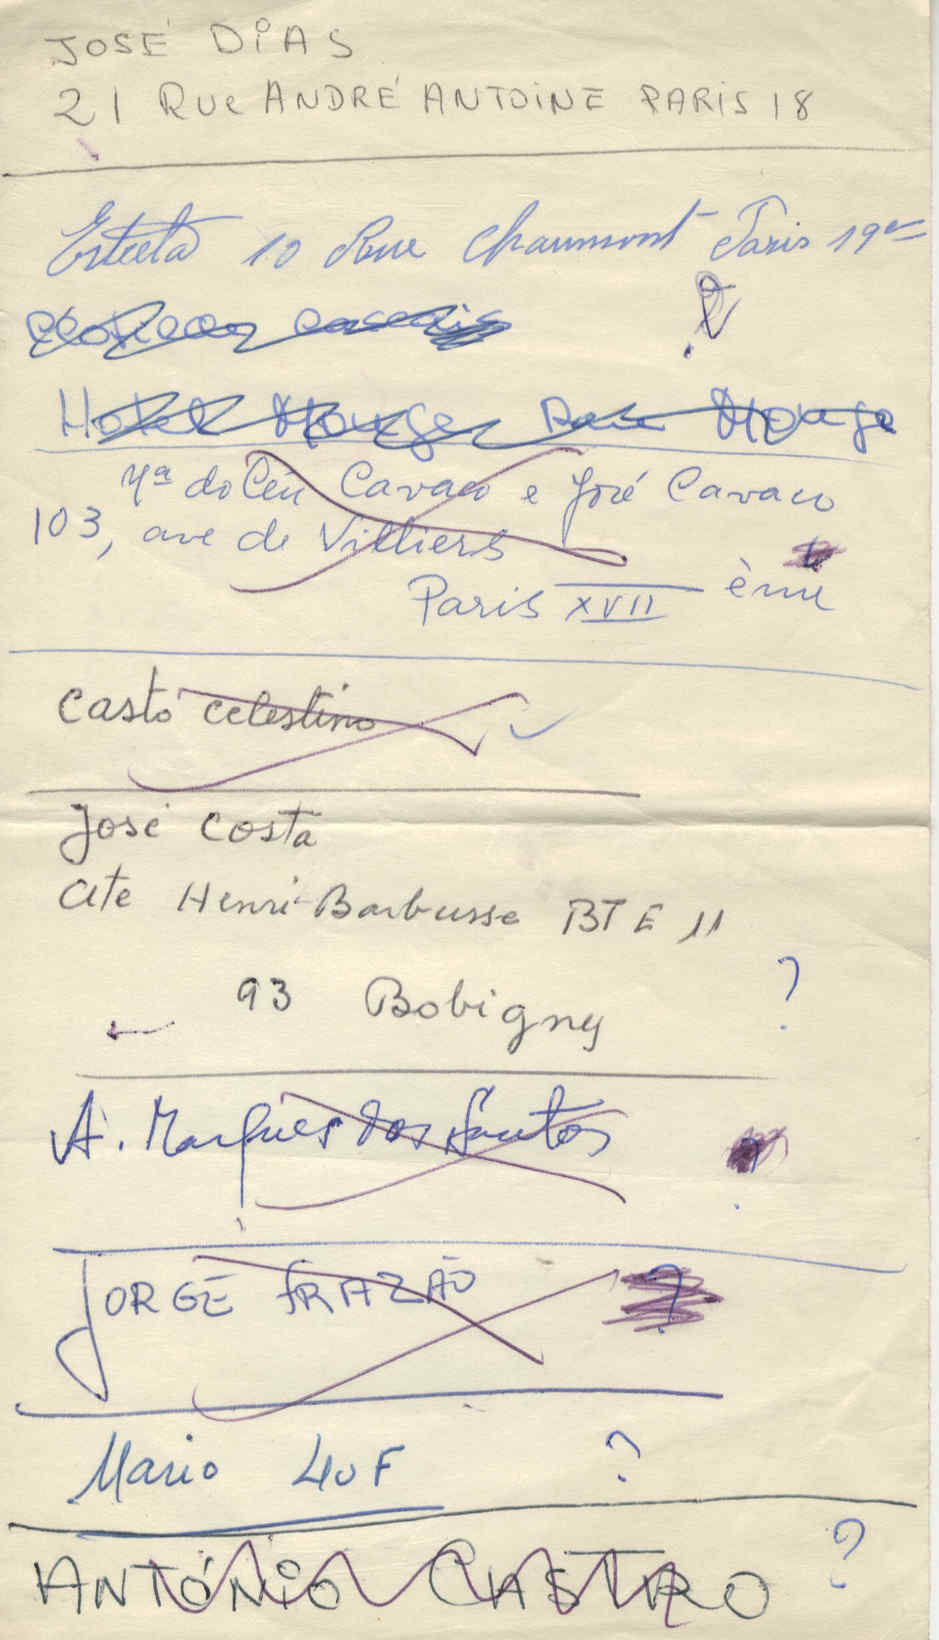 JOSÉ DIAS
21 RUE ANDRÉ ANTOINE PARIS 18
10 Rue Chaumont Paris 19
?
Hotel Monge Rue Monge
Mª do Céu Cavaco e José Cavaco
103, ave de Villiers
Paris XVII ème
Casto celestino
José Costa
Cite Henri-Barbusse BT E 11
93 Bobigny ?
A. Marques dos Santos ?
JORGE FRAZÃO ?
Mario 40F ?
ANTÓNIO CASTRO ?